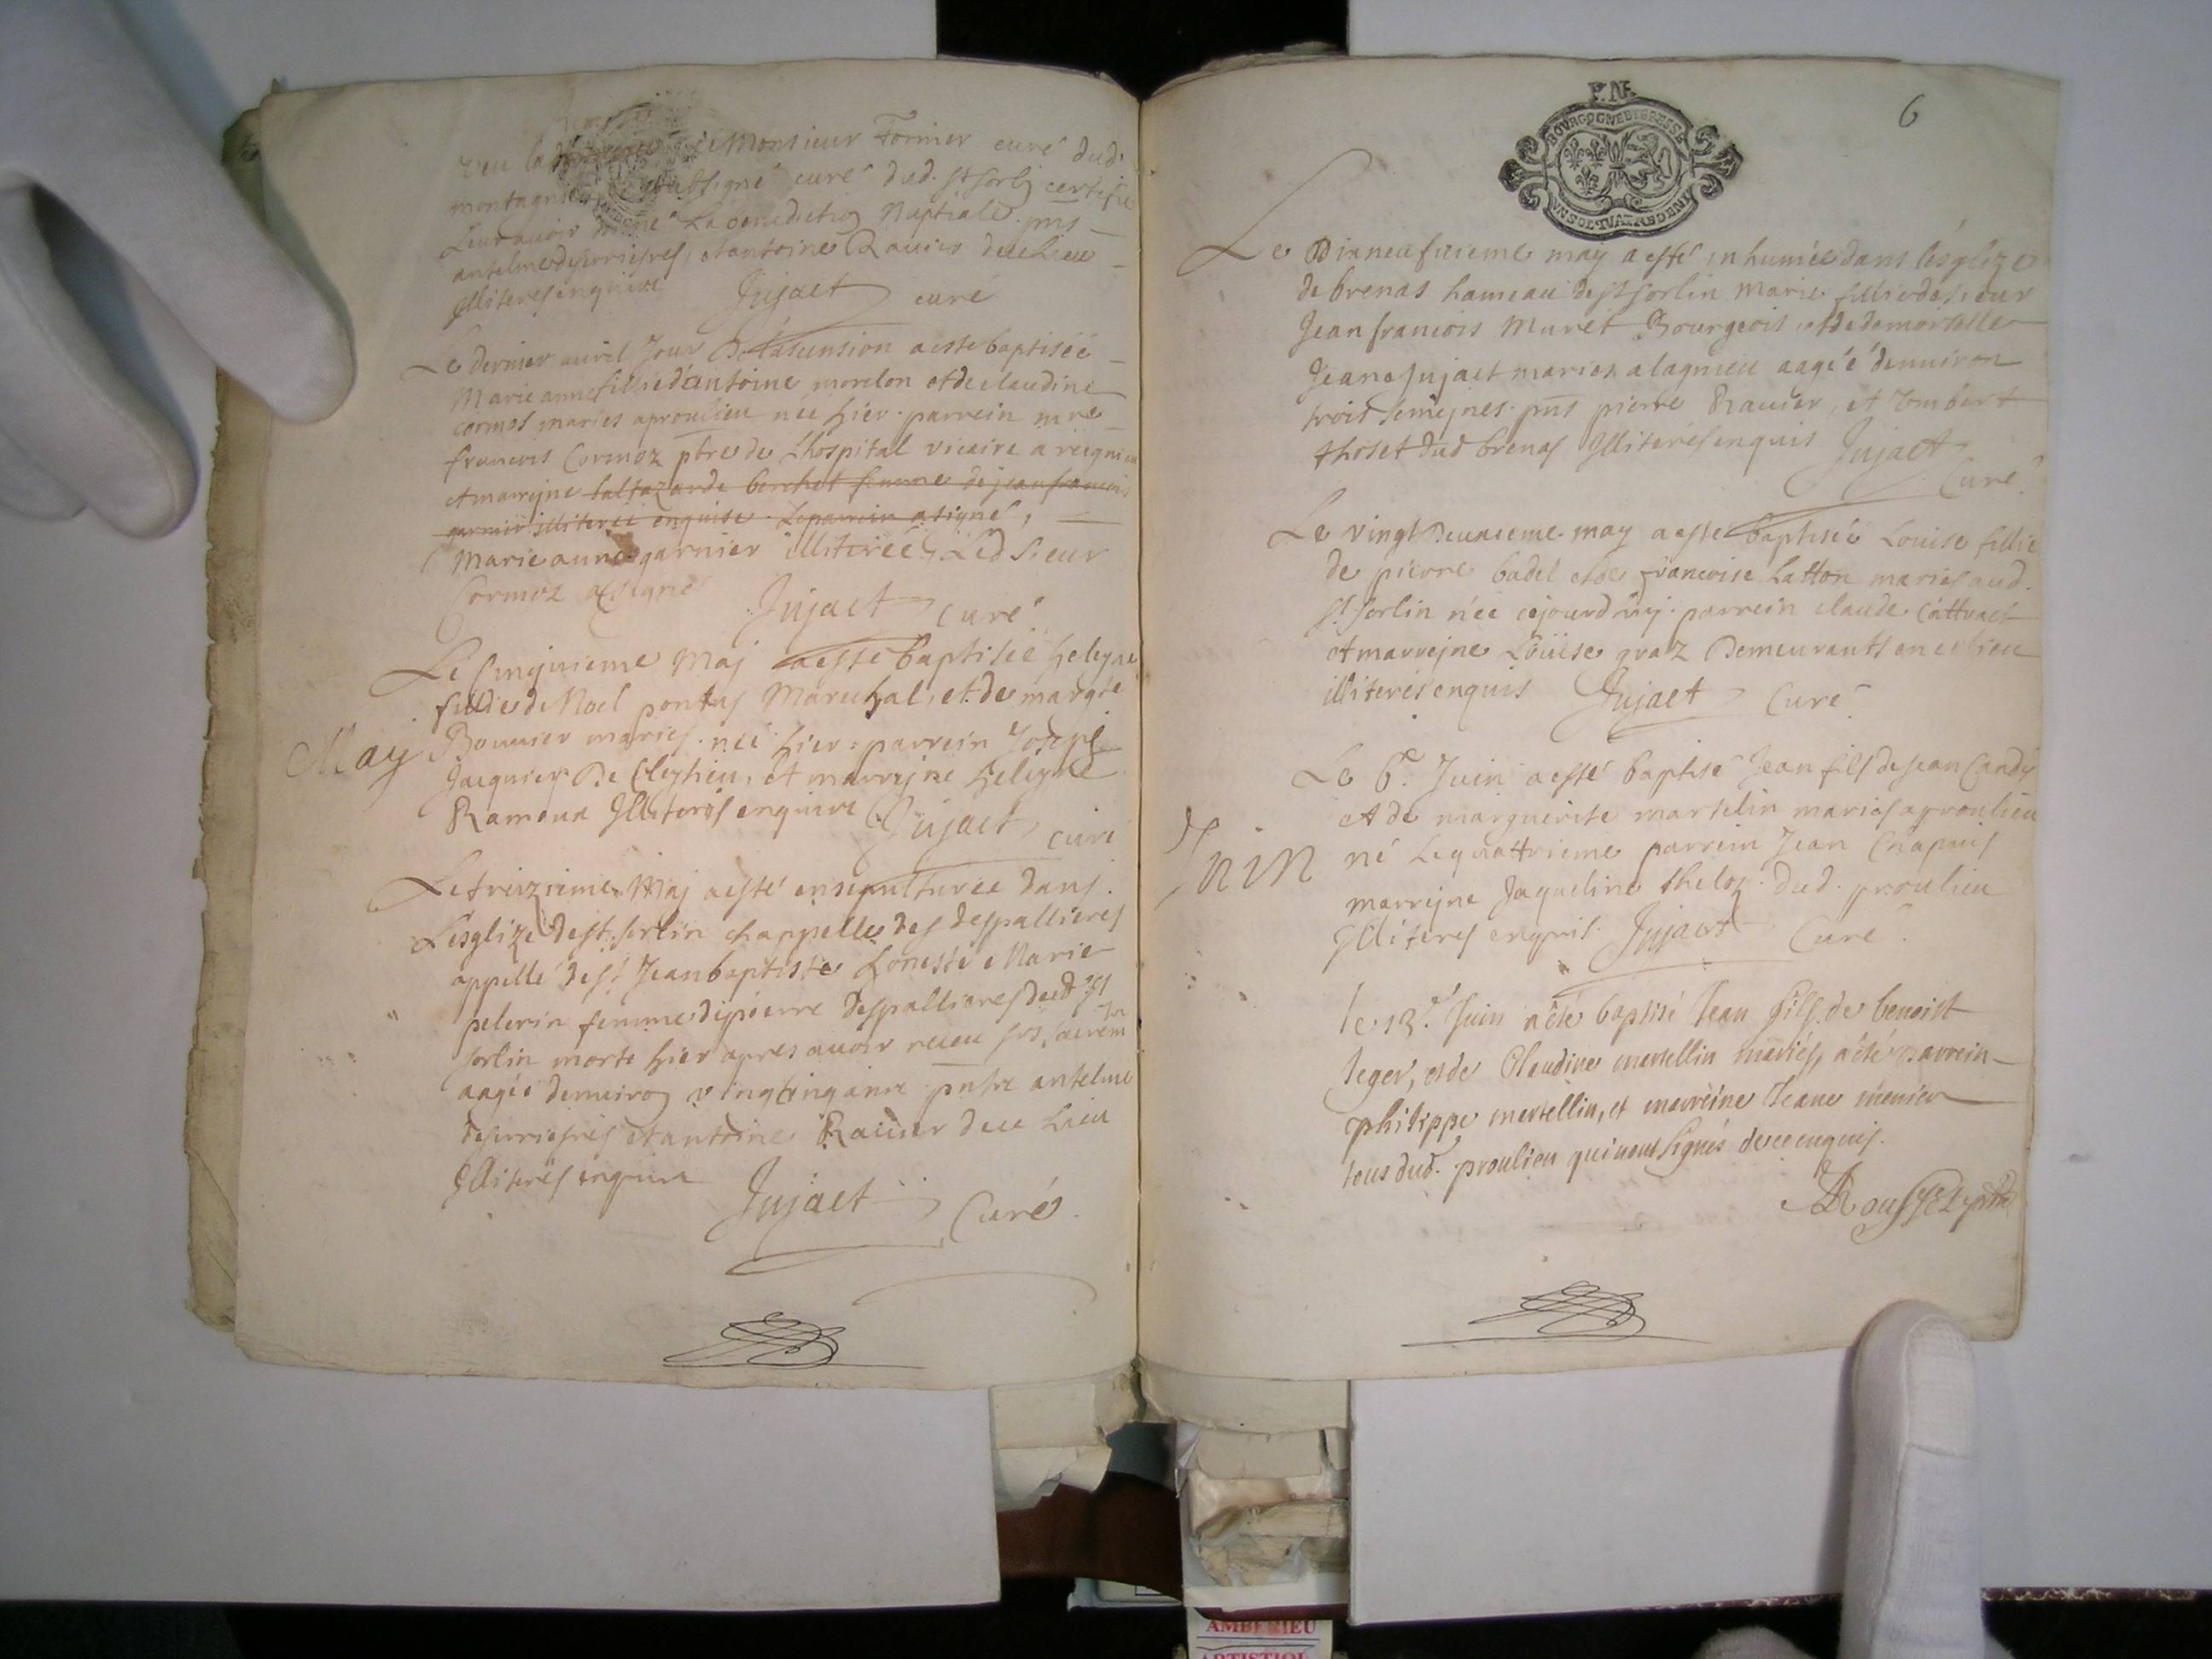 veu la de Monsieur Fornier curé dud.
montagnieu soubsigné curé dud. st sorlin certifie
Leur avoir donné La benediction Nuptiale. pnts
antelme desvriesres, et antoine Ravier du c Lieu
Illiteres enquire Jujaet curé
Le dernier avril Jour De L'ascension a este baptiseé
Marie anne fillie d'antoine morelon et de claudine
cormos maries a proulieu née hier. parrein mre
francois Cormoz pbre de L'hospital vicaire a reignieu
et marrejne baltazarde berchet femme de jean francois
garnier illiterée enquise. Le parrein a signé,
Marie anne garnier illiterée, Led Sieur
Cormoz a signé
Jujaet curé
Le Cinquieme Maj a esté baptisée heleyne
fillie de Noel pontus Marechal, et de margte
May
Bouvier maries. née hier: parrein Joseph
Jacquier De Cleyzieu, et marrejne heleyne
Ramoux Illiteres enquire Jujaet curé
Le treizieme Maj a esté ensepulturée dans
L'esglize de st. sorlin chappelle des despallieres
appellé de st Jean baptiste honeste Marie
pelerin femme de pierre Despallieres dud st
sorlin morte hier apres avoir receu ses sacrem
aageé denviron vingt cinq ans. pnts antelme
desvriesres et antoine Ravier du c Lieu
Illiteres enquire
Jujaet Curé.
F.NE.
BOURGOGNE ET BRESSE
UN SOL QUATRE DENIE
6
Le Dixneufvieme may a esté inhumée dans l'ésglize
de brenas hameau de st sorlin Marie fillie de sieur
Jean francois Muret Bourgeois, et de demoiselle
Jeane Jujaet maries a lagnieu aagéé denviron
trois semejnes. pnts pierre Ravier, et Ymbert
thoset dud brenas Illiterés enquis Jujaet
Curé
Le vingt Deuxieme may a esté baptisée Louise fillie
de pierre badel et de francoise Latton maries aud.
st. sorlin née cejourdhuj. parrein claude cattract
et marrejne Loüise graz Demeurants en ce lieu
illiterés enquis Jujaet Curé
Le 6e. Juin a esté baptisé Jean fils de Jean Candy
et de marguerite martelin maries a proulieu
Juin
né Le quattrieme parrein Jean Chapuis
marrejne Jaqueline theloz. dud. proulieu
Illiteres enquis. Jujaet Curé.
le 13e. Juin a été baptisé Jean fils de benoist
leger, et de Claudine martellin mariés, a été parrein
philippe martellin, et marreine Jeane menier
tous dud. proulieu qui n'ont signés de ce enquis.
Rousset ptre
AMBERIEU